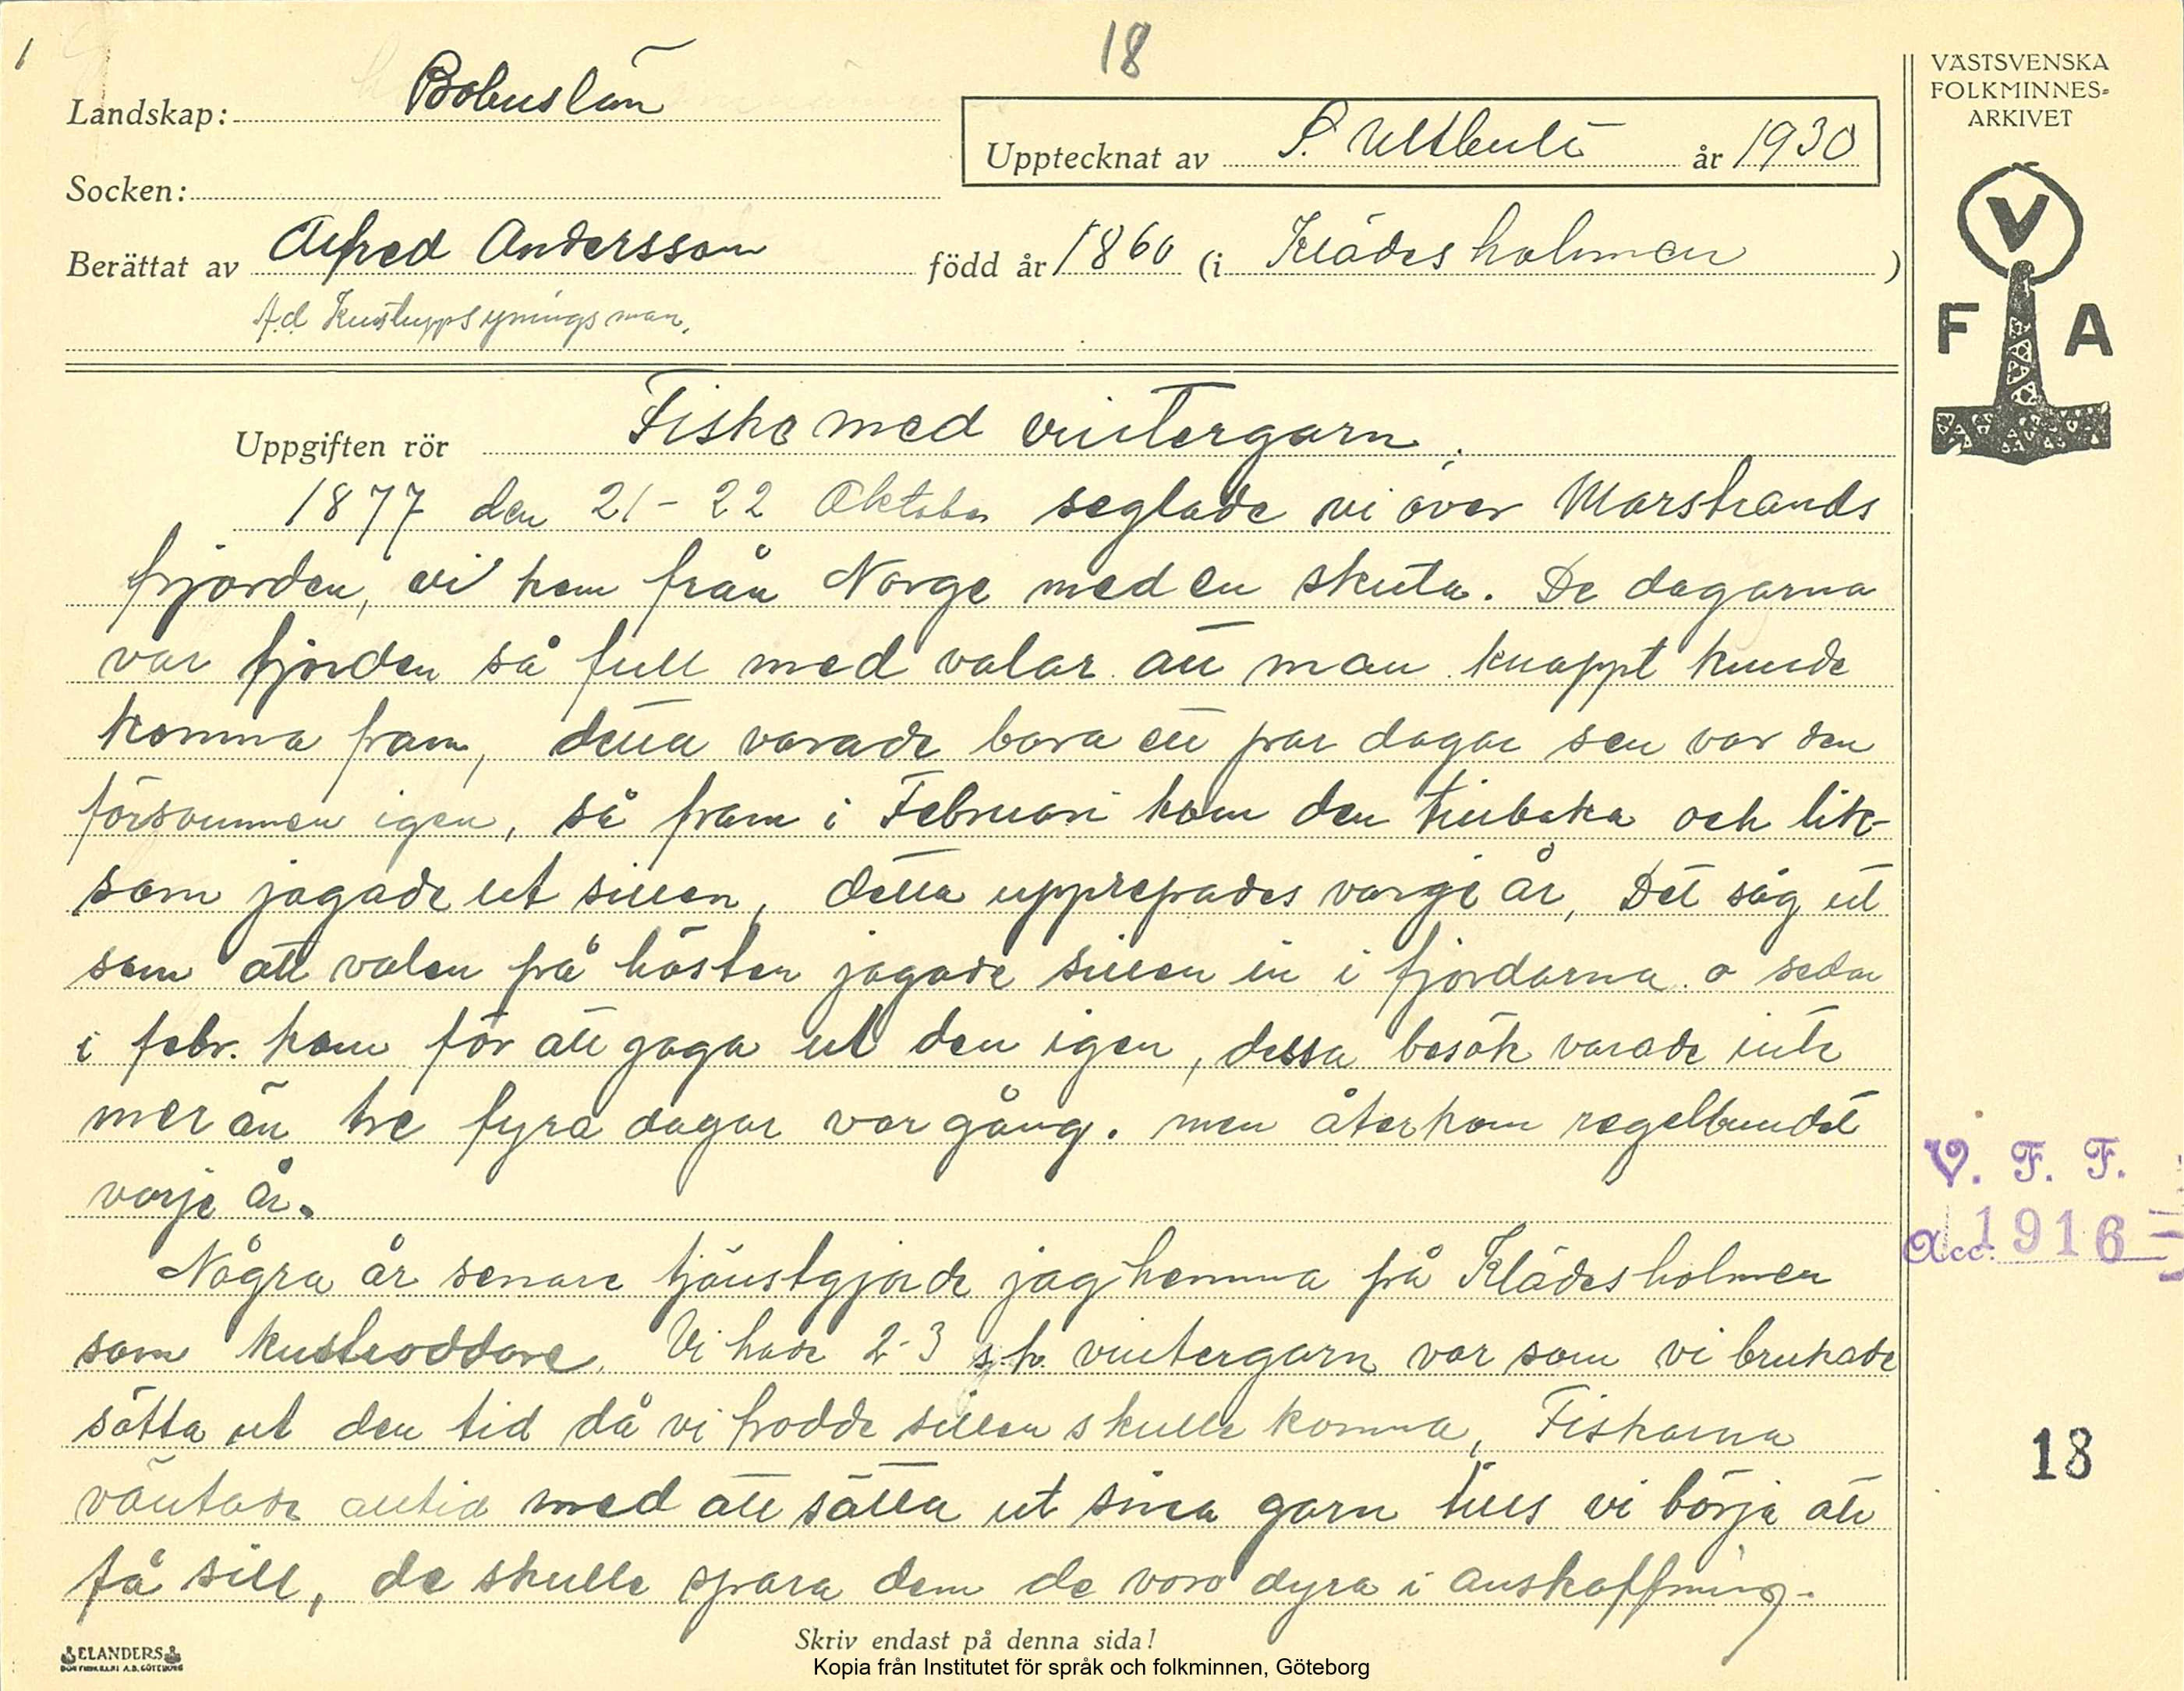 1
18
Landskap: Bohuslän
Upptecknat av S. Uttbult år 1930
Socken:
Berättat av Alfred Andersson född år 1860 (i Klädesholmen )
f.d. Kustuppsyningsman.
VÄSTSVENSKA
FOLKMINNES-
ARKIVET
V
F A
Uppgiften rör Fiske med vintergarn.
1877 den 21-22 Oktober seglade vi över Marstrands
fjorden, vi kom från Norge med en skuta. De dagarna
var fjorden så full med valar att man knappt kunde
komma fram, detta varade bara ett par dagar sen var den
försvunnen igen, så fram i Februari kom den tillbaka och lik-
som jagade ut sillen, detta upprepades varje år, Det såg ut
som att valen på hösten jagade sillen in i fjordarna o sedan
i febr. kom för att jaga ut den igen, dessa besök varade inte
mer än tre fyra dagar var gång. men återkom regelbundet
varje år.
Några år senare tjänstgjorde jag hemma på Klädesholmen
som kustroddare. Vi hade 2-3 s.k. vintergarn var som vi brukade
sätta ut den tid då vi trodde sillen skulle komma, Fiskarna
väntade alltid med att sätta ut sina garn tills vi börja att
få sill, de skulle spara dem de voro dyra i anskaffning.
V. F. F.
Acc. 1916
18
ELANDERS
BOKTRYCKERI A.B. GÖTEBORG
Skriv endast på denna sida!
Kopia från Institutet för språk och folkminnen, Göteborg